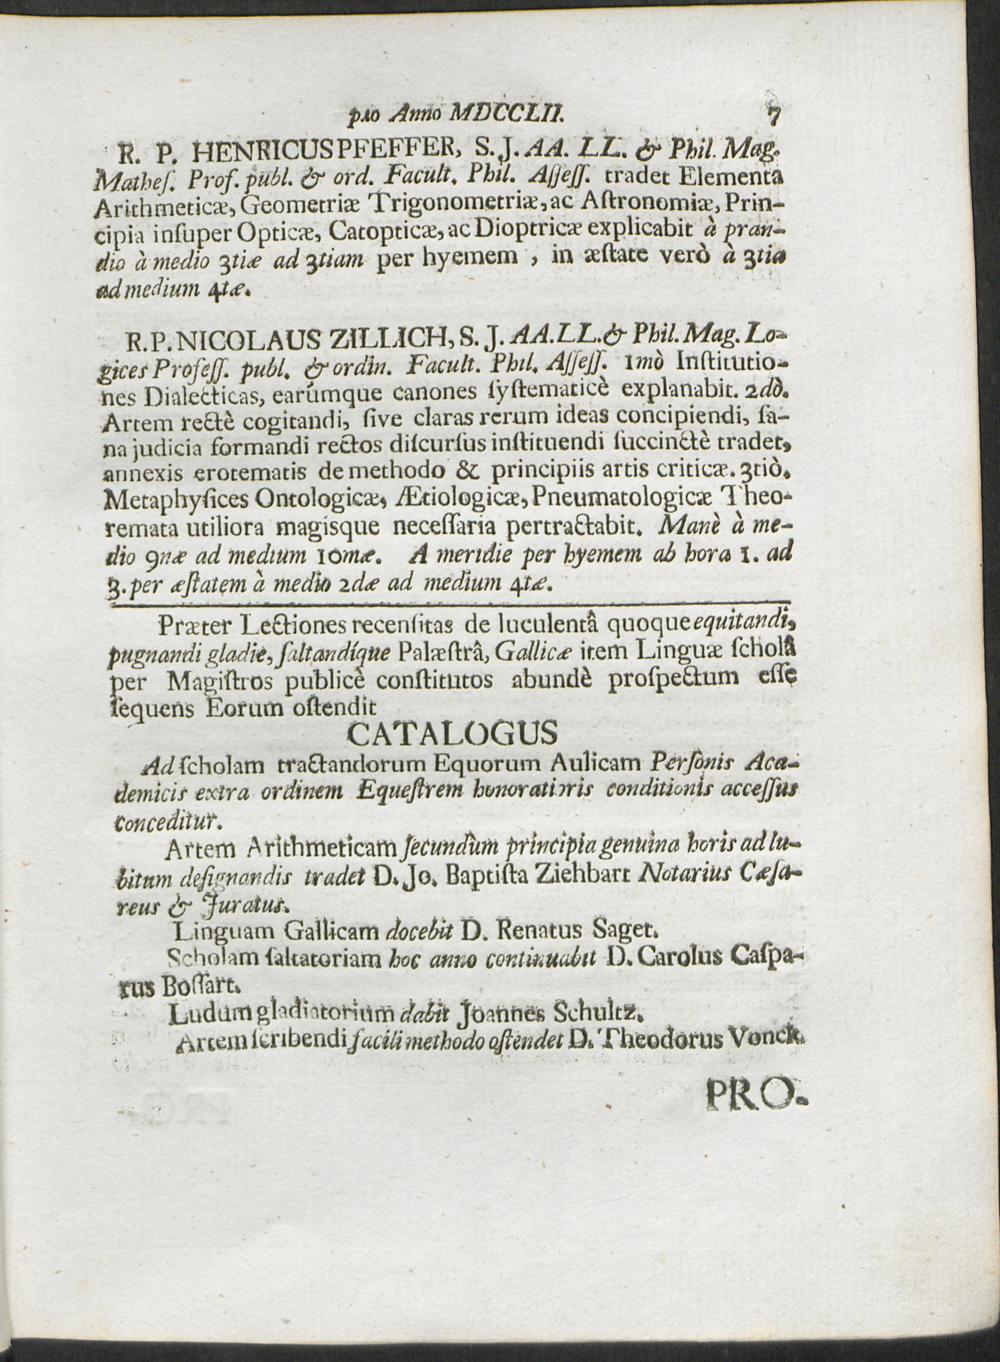 pro Anno MDCCLII. 7
R. P. HENRICUS PFEFFER, S. J. AA. LL. & Phil. Mag.
Matheſ. Prof. publ. & ord. Facult. Phil. Aſſeſſ. tradet Elementa
Arithmeticæ, Geometriæ Trigonometriæ, ac Aſtronomiæ, Prin-
cipia inſuper Opticæ, Catopticæ, ac Dioptricæ explicabit à pran-
dio à medio 3tiæ ad 3tiam per hyemem , in æſtate verò à 3tia
ad medium 4tæ.
R. P. NICOLAUS ZILLICH, S. J. AA. LL. & Phil. Mag. Lo-
gices Profeſſ. publ. & ordin. Facult. Phil. Aſſeſſ. 1mò Inſtitutio-
nes Dialecticas, earúmque canones ſyſtematicè explanabit. 2dò.
Artem rectè cogitandi, ſive claras rerum ideas concipiendi, ſa-
na judicia formandi rectos diſcurſus inſtituendi ſuccinctè tradet,
annexis erotematis de methodo & principiis artis criticæ. 3tiò.
Metaphyſices Ontologicæ, Ætiologicæ, Pneumatologicæ Theo-
remata utiliora magisque neceſſaria pertractabit. Manè à me-
dio 9næ ad medium 10mæ. A meridie per hyemem ab hora 1. ad
3. per æſtatem à medio 2dæ ad medium 4tæ.
Præter Lectiones recenſitas de luculentâ quoque equitandi,
pugnandi gladie, ſaltandíque Palæſtrâ, Gallicæ item Linguæ ſcholâ
per Magiſtros publicè conſtitutos abundè proſpectum eſſe
ſequens Eorum oſtendit
CATALOGUS
Ad ſcholam tractandorum Equorum Aulicam Perſonis Aca-
demicis extra ordinem Equeſtrem honoratioris conditionis acceſſus
conceditur.
Artem Arithmeticam ſecundùm principia genuina horis ad lu-
bitum deſignandis tradet D. Jo. Baptiſta Ziehbart Notarius Cæſa-
reus & Juratus.
Linguam Gallicam docebit D. Renatus Saget.
Scholam ſaltatoriam hoc anno continuabit D. Carolus Caſpa-
rus Boſſart.
Ludum gladiatorium dabit Joannes Schultz.
Artem ſcribendi facili methodo oſtendet D. Theodorus Vonck.
PRO-